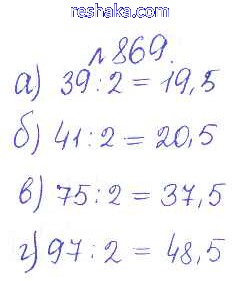 reshaka.com
№869.
а) 39:2 = 19,5
б) 41:2 = 20,5
в) 75:2 = 37,5
г) 97:2 = 48,5